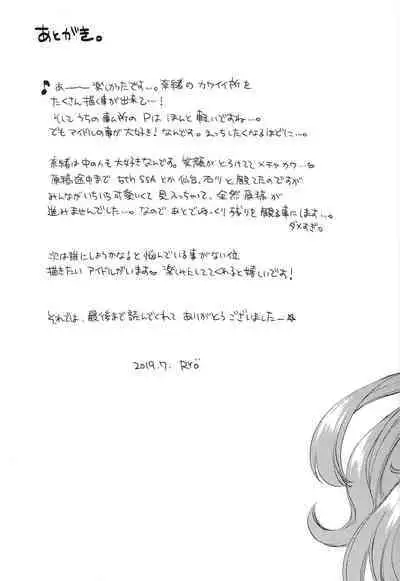 あとがき。
♪ あ———楽しかったです…。奈緒のカワイイ所を
たくさん描く事が出来て…!
そしてうちの事ム所のPはほんと軽いですね…。
でもアイドルの事が大好き!なんです。えっちしたくなるほどに…。
奈緒は中の人も大好きなんです。笑顔がとろけててメチャカワ…
原稿途中まで 5th SSAとか仙台、石川と観てたのですが
みんながいちいち可愛いくて見入っちゃって、全然原稿が
進みませんでした…。なのであとでゆっくり残りを観る事にします…。
ダメすぎ。
次は誰にしようかなると悩んでいる事がない位
描きたいアイドルがいます。楽しみにしててくれると嬉しいです!
それでは、最後まで読んでくれてありがとうございましたー☆
2019.7. Ryö